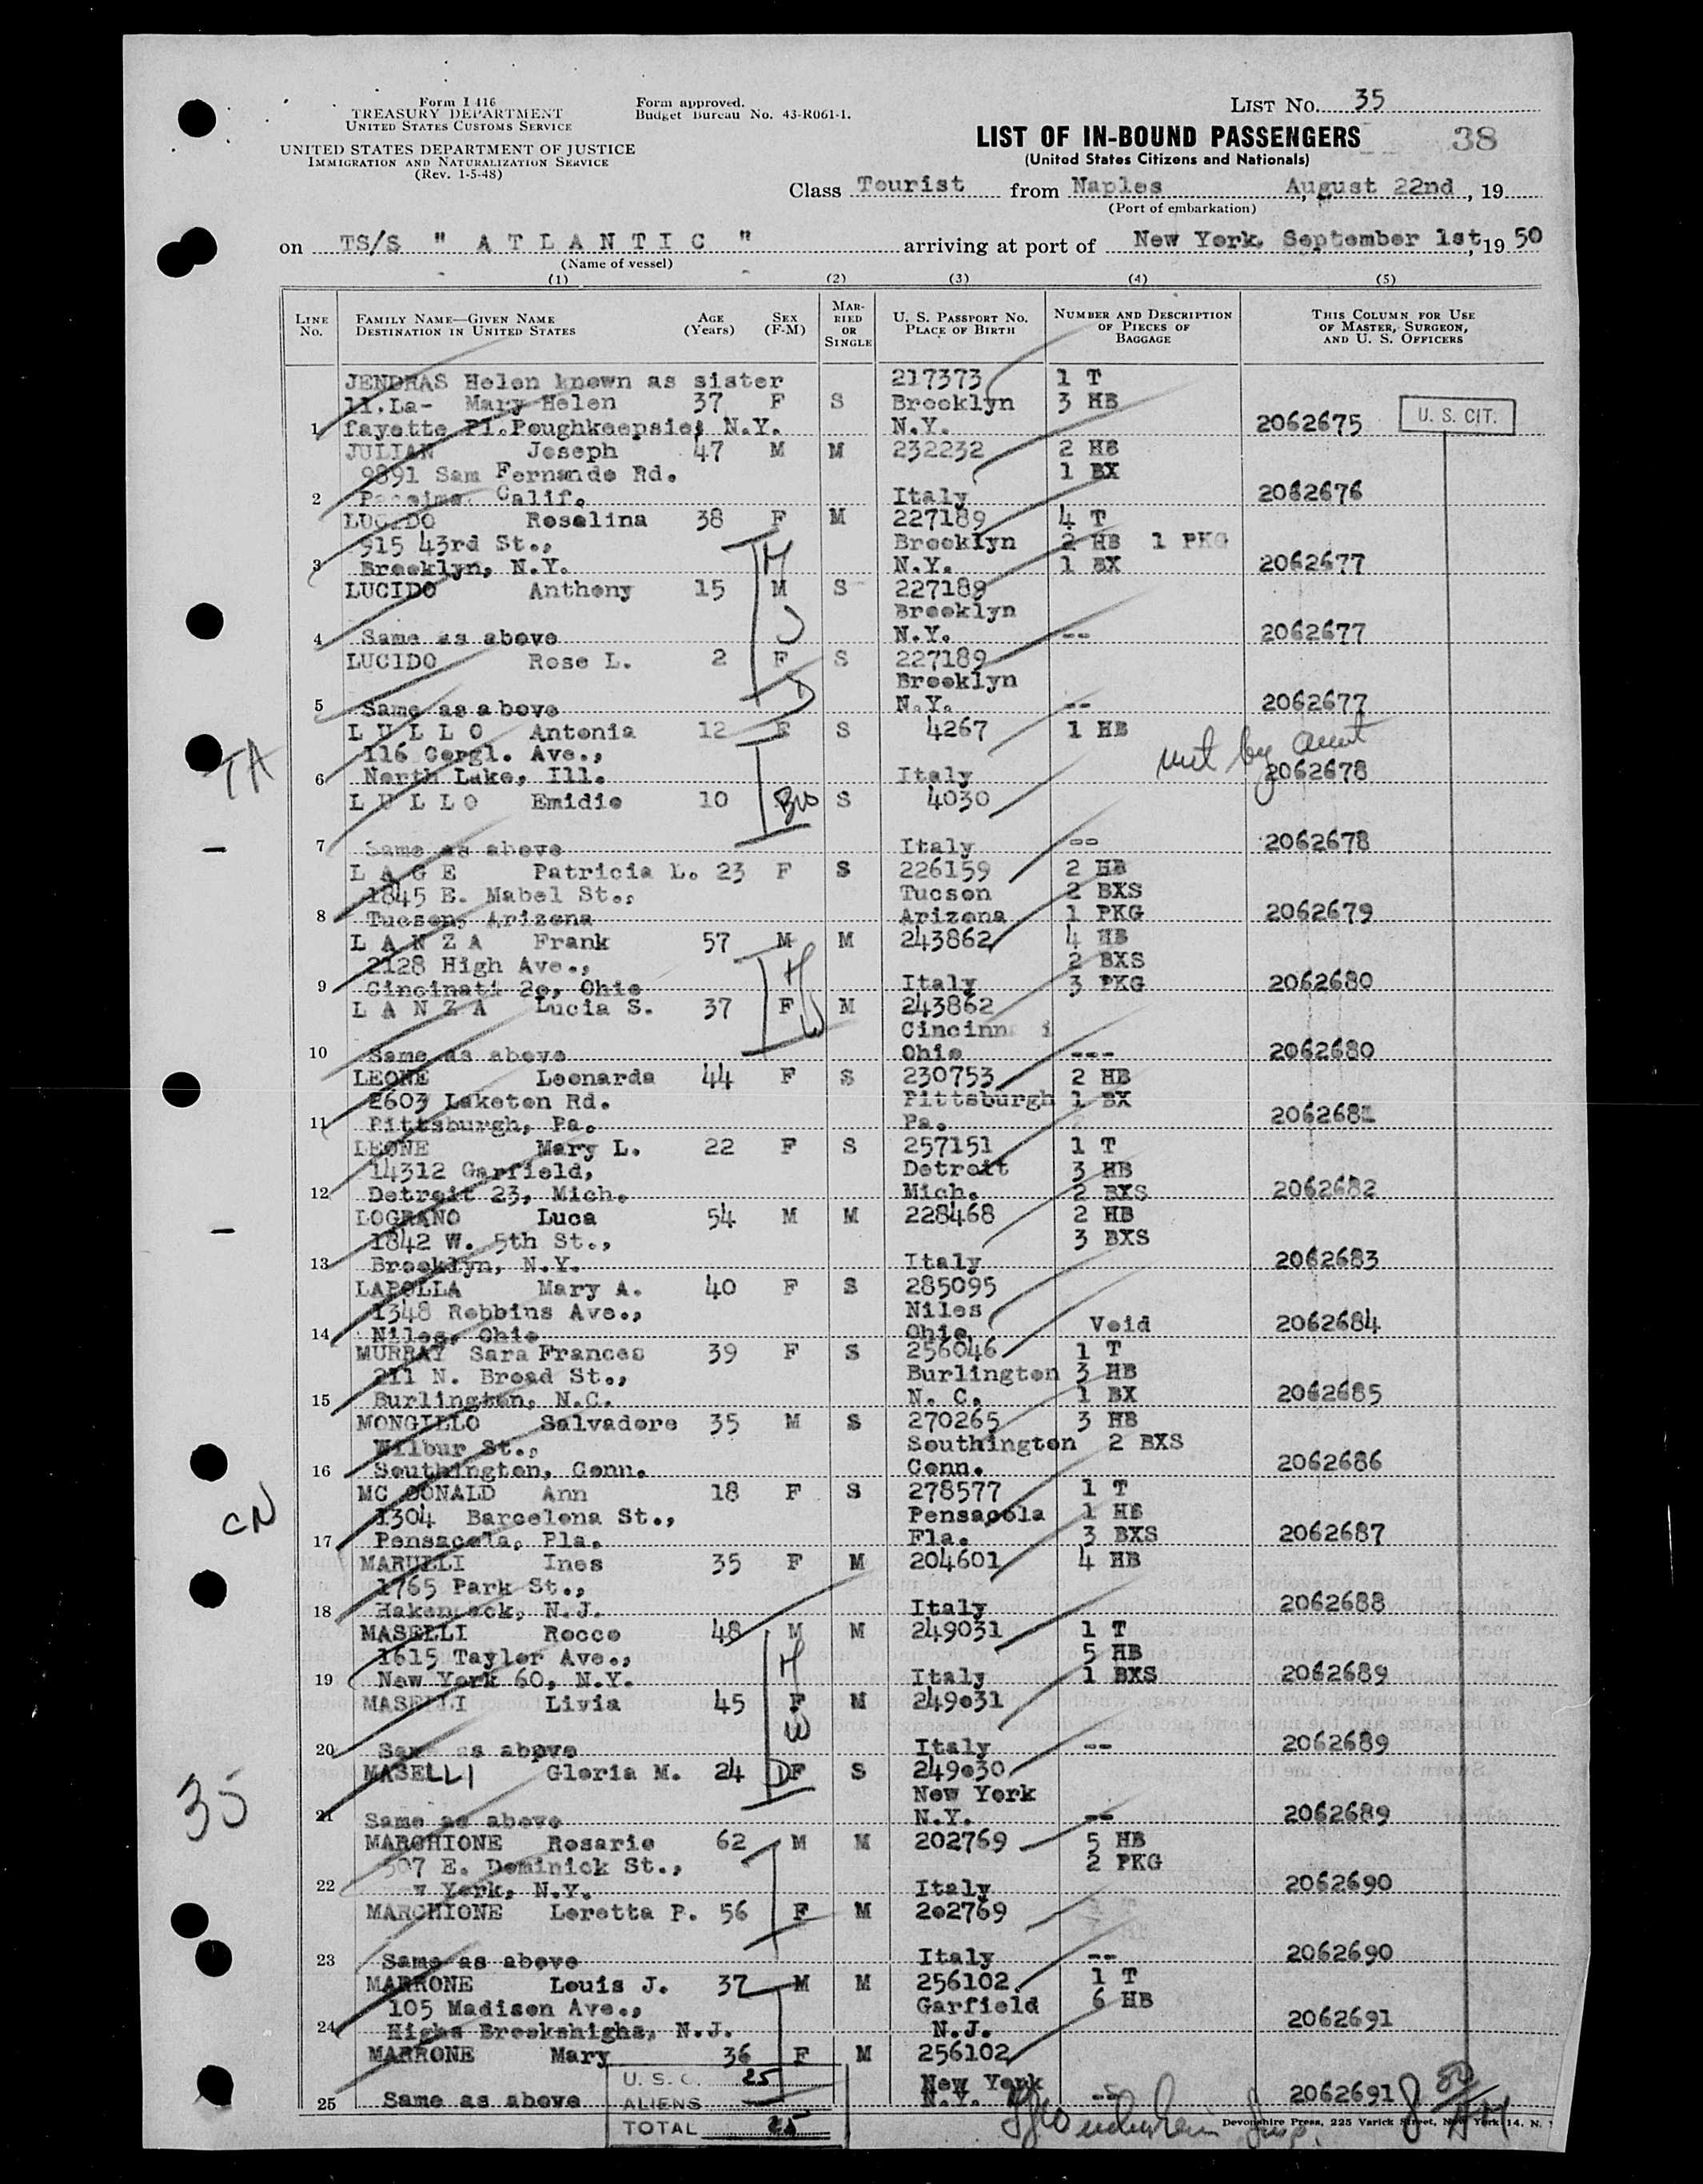 Form I 416
TREASURY DEPARTMENT
UNITED STATES CUSTOMS SERVICE
UNITED STATES DEPARTMENT OF JUSTICE
IMMIGRATION AND NATURALIZATION SERVICE
(Rev. 1-5-48)
Form approved.
Budget Bureau No. 43-R061-1.
LIST NO. 35
LIST OF IN-BOUND PASSENGERS
38
(United States Citizens and Nationals)
Class Tourist from Naples August 22nd, 19
(Port of embarkation)
on TS/S " A T L A N T I C " arriving at port of New York, September 1st, 19 50
(Name of vessel)
(1) (2) (3) (4) (5)
LINE No. FAMILY NAME—GIVEN NAME DESTINATION IN UNITED STATES AGE (Years) SEX (F-M) MARRIED OR SINGLE U. S. PASSPORT NO. PLACE OF BIRTH NUMBER AND DESCRIPTION OF PIECES OF BAGGAGE THIS COLUMN FOR USE OF MASTER, SURGEON, AND U. S. OFFICERS
JENDRAS Helen known as sister 217373 1 T
11.La- Mary Helen 37 F S Brooklyn 3 HB
1 fayette Pl.Poughkeepsie, N.Y. N.Y. 2062675 U. S. CIT.
JULIAN Joseph 47 M M 232232 2 HB
9891 Sam Fernando Rd. 1 BX
2 Calif. Italy 2062676
LUCIDO Rosalina 38 F M 227189 4 T
915 43rd St., Brooklyn 2 HB 1 PKG
H
3 Brooklyn, N.Y. N.Y. 1 BX 2062677
LUCIDO Anthony 15 M S 227189
Brooklyn
4 Same as above N.Y. -- 2062677
LUCIDO Rose L. 2 F S 227189
Brooklyn
5 Same as above N.Y. -- 2062677
L U L L O Antonia 12 F S 4267 1 HB
116 Cergl. Ave., met by aunt
TA
6 North Lake, Ill. Italy 2062678
L U L L O Emidio 10 S 4030
7 Same as above Italy -- 2062678
L A G E Patricia L. 23 F S 226159 2 HB
1845 E. Mabel St., Tucson 2 BXS
8 Tucson, Arizona Arizona 1 PKG 2062679
L A N Z A Frank 57 M M 243862 4 HB
2128 High Ave., 2 BXS
H
9 Cincinati 20, Ohio Italy 3 PKG 2062680
L A N Z A Lucia S. 37 F M 243862
W
10 Same as above Ohio --- 2062680
LEONE Leonarda 44 F S 230753 2 HB
2603 Laketon Rd. Pittsburgh 1 BX
11 Pittsburgh, Pa. Pa. 2062681
LEONE Mary L. 22 F S 257151 1 T
14312 Garfield, Detroit 3 HB
12 Detroit 23, Mich. Mich. 2 BXS 2062682
LOGRANO Luca 54 M M 228468 2 HB
1842 W. 5th St., 3 BXS
13 Brooklyn, N.Y. Italy 2062683
LAPOLLA Mary A. 40 F S 285095
1348 Robbins Ave., Niles
14 Niles, Ohio Ohio Void 2062684
MURRAY Sara Frances 39 F S 256046 1 T
211 N. Broad St., Burlington 3 HB
15 Burlington, N.C. N. C. 1 BX 2062685
MONGILLO Salvadore 35 M S 270265 3 HB
Wilbur St., Southington 2 BXS
16 Southington, Conn. Conn. 2062686
MC DONALD Ann 18 F S 278577 1 T
1304 Barcelona St., Pensacola 1 HB
CN
17 Pensacola, Pla. Fla. 3 BXS 2062687
MARULLI Ines 35 F M 204601 4 HB
1765 Park St.,
18 N.J. Italy 2062688
MASELLI Rocco 48 M M 249031 1 T
1615 Taylor Ave., 5 HB
H
19 New York 60, N.Y. Italy 1 BXS 2062689
MASELLI Livia 45 F M 249031
W
20 Same as above Italy -- 2062689
MASELLI Gloria M. 24 D F S 249030
New York
35
21 Same as above N.Y. -- 2062689
MARCHIONE Rosario 62 M M 202769 5 HB
507 E. Dominick St., 2 PKG
22 York, N.Y. Italy 2062690
MARCHIONE Loretta P. 56 F M 202769
23 Same as above Italy -- 2062690
MARRONE Louis J. 37 M M 256102 1 T
105 Madison Ave., Garfield 6 HB
24 Highs Brookshighs, N.J. N.J. 2062691
MARRONE Mary 36 F M 256102
New York
25 Same as above N.Y. -- 2062691
U. S. C. 25
ALIENS
TOTAL 25
Devonshire Press, 225 Varick Street, New York 14, N.